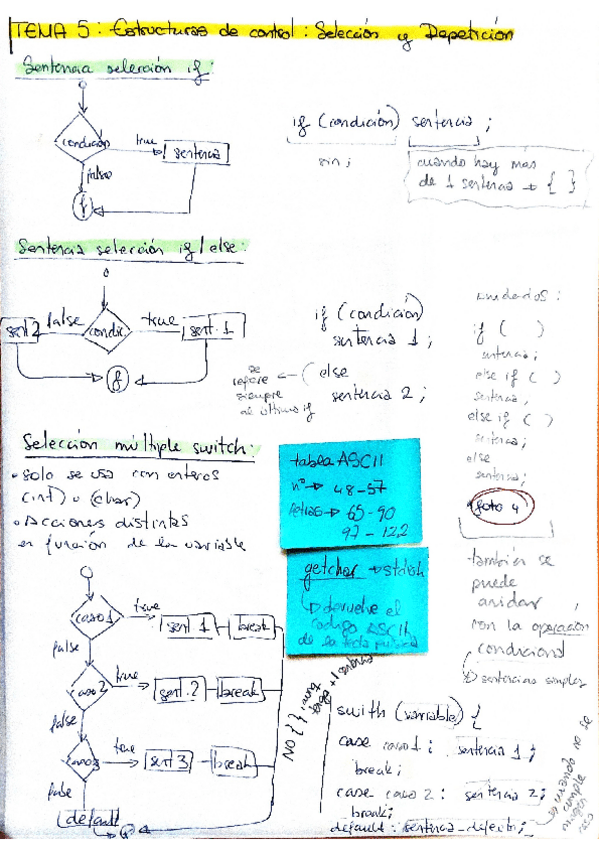 TEMA 5: Estructuras de control: Selección y Repetición
Sentencia selección if:
condición
true
sentencia
false
f
if (condición) sentencia ;
sin ;
cuando hay mas
de 1 sentencia → { }
Sentencia selección if/else:
sent 2
false
condic.
true
sent. 1
f
if (condición)
sentencia 1 ;
else
sentencia 2 ;
se
refiere
siempre
al último if
if ( )
sentencia ;
else if ( )
sentencia ;
else if ( )
sentencia ;
else
sentencia ;
foto 4
también se
puede
anidar
con la operación
condicional
sentencias simples
Selección múltiple switch:
• solo se usa con enteros
(int) o (char)
• Acciones distintas
en función de la variable
tabla ASCII
nº → 48-57
letras → 65-90
97-122
getchar → stdio.h
devuelve el
código ASCII
de la tecla pulsada
caso 1
true
sent 1
break
false
caso 2
true
sent. 2
break
false
caso 3
true
sent 3
break
false
default
f
NO { }, aunq.
haya + 1 sentencia
swith (variable) {
case caso 1 : sentencia 1 ;
break ;
case caso 2 : sentencia 2 ;
break ;
default : sentencia_defecto ;
cuando no se
cumple
ningún
caso